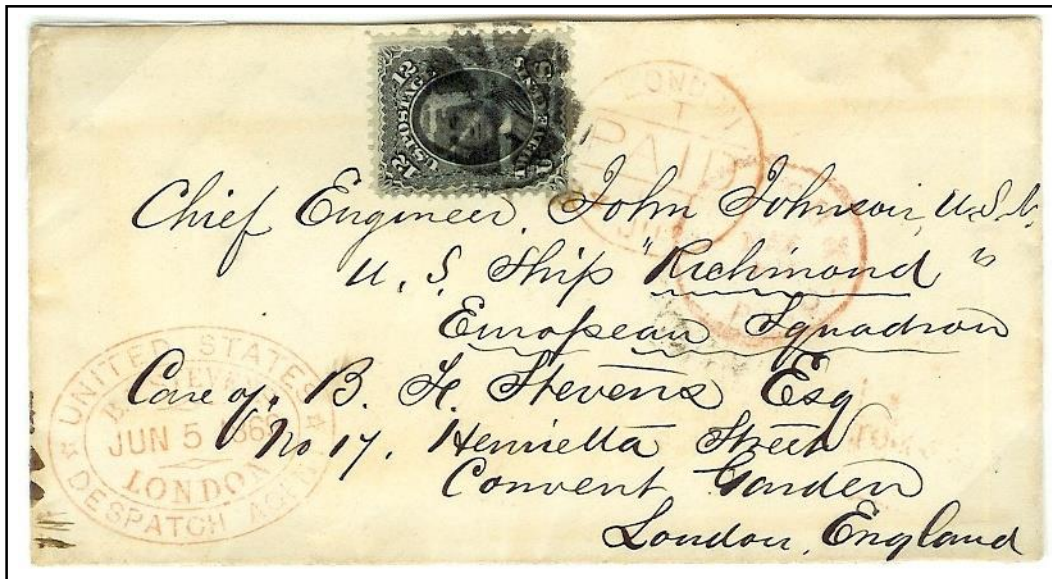 12 U.S. POSTAGE 12
LONDON
PAID
Chief Engineer, John Johnson, U.S.N.
U. S. Ship "Richmond"
European Squadron
Care of. B. F. Stevens Esq
No 17. Henrietta Street
Convent Garden
London, England
UNITED STATES
JUN 5 1869
LONDON
DESPATCH AGENT